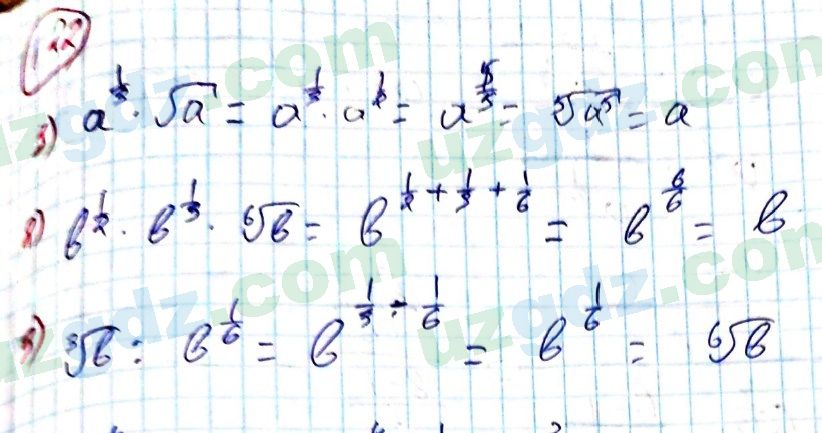 122
3) a^{1/3} · √a = a^{1/3} · a^{1/2} = a^{5/5} = ⁵√a⁵ = a
2) b^{1/2} · b^{1/3} · ⁶√b = b^{1/2 + 1/3 + 1/6} = b^{6/6} = b
3) ³√b : b^{1/6} = b^{1/3 - 1/6} = b^{1/6} = ⁶√b
uzgdz.com